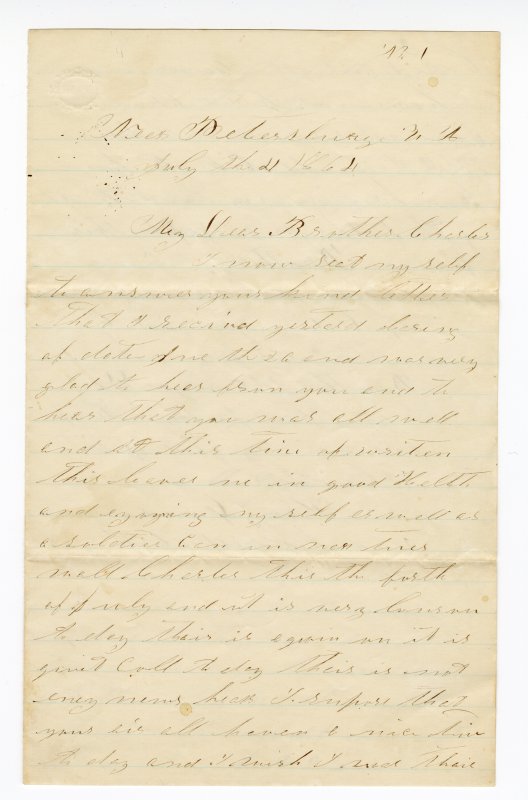 42 1
Near Petersburg
July th 4 1864
My Dear Brother Charles
I now seat my self
to answer your kind letter
that I recived yesterd bering
of date June th 26 and was very
glad to hear from you and to
hear that you was all well
and at this time of writen
this leaves me in good Helth
and enjoying my self as well as
a soldier can in
well Charles this the forth
of July and it is very
to day thair is a on it is
quit to day thair is not
eney news heck I supose that
your all haven a nice time
to day and I wish I was thair